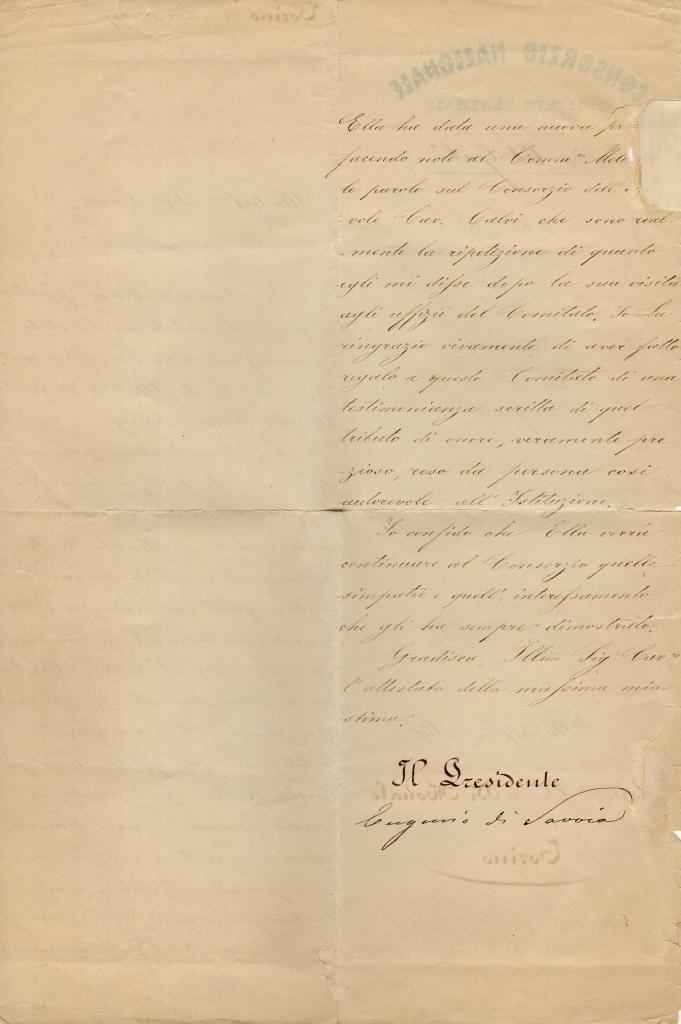 Ella ha data una nuova pr
facendo noto al Comm.re
le parole sul Consorzio dell'
-vole Cav. Calvi, che sono real-
-mente la ripetizione di quanto
egli mi disse dopo la sua visita
agli uffizii del Comitato. Io La
ringrazio vivamente di aver fatto
regalo a questo Comitato di una
testimonianza scritta di quel
tributo di onore, veramente pre
-zioso, reso da persona così
autorevole all'Istituzione.
Io confido che Ella vorrà
continuare al Consorzio quelle
simpatie e quell'interessamento
che gli ha sempre dimostrato.
Gradisca, Illm̃o Sig. Cav.re
l'attestato della massima mia
stima.
Il Presidente
Eugenio di Savoia
CONSORZIO NAZIONALE
COMITATO CENTRALE
Torino
Torino